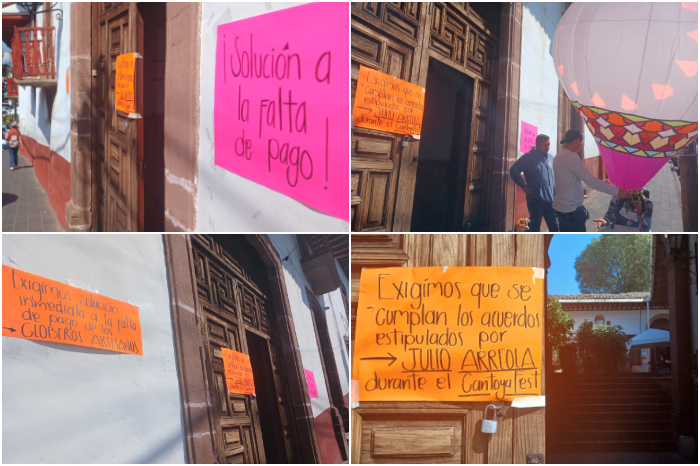 ¡Solución a
la falta
de pago!
Exigimos que se
cumplan los acuerdos
estipulados por
→ JULIO ARREOLA
durante el Cantoya
Exigimos solución
inmediata a la falta
de pago de los
→ GLOBEROS ARTESANOS
Exigimos que se
cumplan los acuerdos
estipulados por
→ JULIO ARREOLA
durante el CantoyaFest